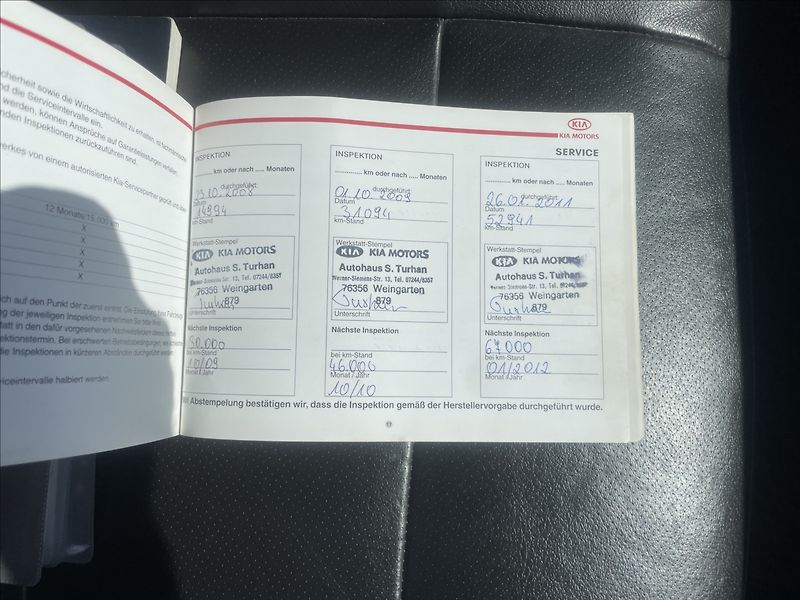 cherheit sowie die Wirtschaftlichkeit zu erhalten, ist fachmännische
nd die Serviceintervalle ein.
werden, können Ansprüche auf Garantieleistungen verfallen,
nden Inspektionen zurückzuführen sind.
erkes von einem autorisierten Kia-Servicepartner geprüft und
12 Monate/15.000 km
X
X
X
X
X
ich auf den Punkt der zuerst eintritt. Die Einstufung Ihres Fahrzeugs
ng der jeweiligen Inspektion entnehmen Sie bitte Ihrer
tatt in den dafür vorgesehenen
ektionstermin. Bei erschwerten Betriebsbedingungen, wie
die Inspektionen in kürzeren Abständen durchgeführt werden.
viceintervalle halbiert werden.
KIA
KIA MOTORS
SERVICE
INSPEKTION
km oder nach ..... Monaten
durchgeführt:
23.10.2008
Datum
14994
km-Stand
Werkstatt-Stempel
KIA KIA MOTORS
Autohaus S. Turhan
Werner-Siemens-Str. 13, Tel. 07244/8357
76356 Weingarten
879
Unterschrift
Nächste Inspektion
30.000
bei km-Stand
10/09
Monat / Jahr
INSPEKTION
............ km oder nach ..... Monaten
durchgeführt:
01.10.2009
Datum
31094
km-Stand
Werkstatt-Stempel
KIA KIA MOTORS
Autohaus S. Turhan
Werner-Siemens-Str. 13, Tel. 07244/8357
76356 Weingarten
Turhan 879
Unterschrift
Nächste Inspektion
bei km-Stand
46.000
Monat / Jahr
10/10
INSPEKTION
............ km oder nach ..... Monaten
durchgeführt:
26.01.2011
Datum
52941
km-Stand
Werkstatt-Stempel
KIA KIA MOTORS
Autohaus S. Turhan
Werner-Siemens-Str. 13, Tel. 07244/8357
76356 Weingarten
Turhan 879
Unterschrift
Nächste Inspektion
67000
bei km-Stand
01/2012
Monat / Jahr
Mit Abstempelung bestätigen wir, dass die Inspektion gemäß der Herstellervorgabe durchgeführt wurde.